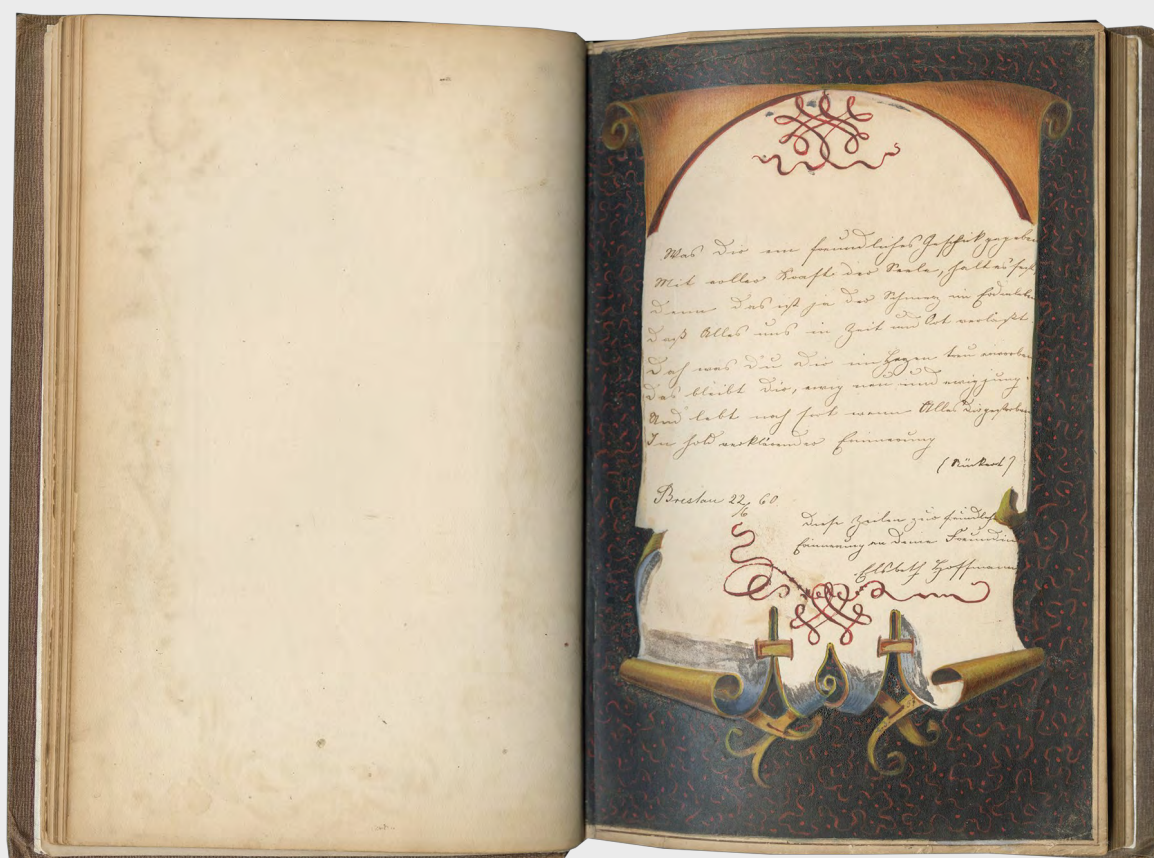 Was Dir ein freundliches Geschik gegeben
Mit voller Kraft der Seele, halt es fest
Denn das ist ja der Schmerz im Erdenleben
Daß Alles uns in Zeit und Ort verlaßt
Doch was Du Dir im Herzen treu erworben
Das bleibt Dir, ewig neu und ewig jung.
Und lebt noch fort wenn Alles Dir gestorben
In hold verklärender Erinnerung
(Rückert)
Breslau 22/6 60
Diese Zeilen zur freundlichen
Erinnerung an Deine Freundin
Elsbeth Hoffmann